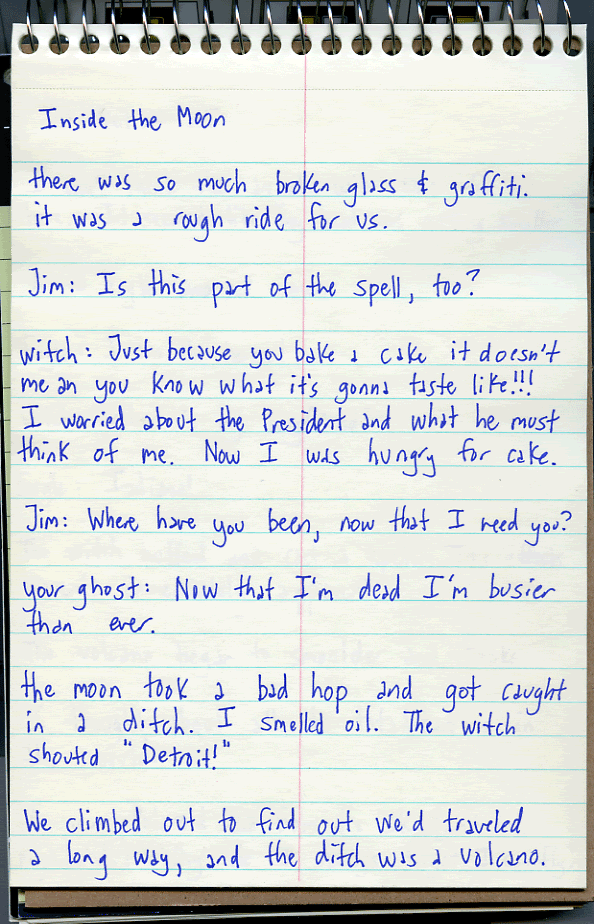 Inside the Moon
there was so much broken glass & graffiti.
it was a rough ride for us.
Jim: Is this part of the spell, too?
witch: Just because you bake a cake it doesn't
mean you know what it's gonna taste like!!!
I worried about the President and what he must
think of me. Now I was hungry for cake.
Jim: Where have you been, now that I need you?
your ghost: Now that I'm dead I'm busier
than ever.
the moon took a bad hop and got caught
in a ditch. I smelled oil. The witch
shouted "Detroit!"
We climbed out to find out we'd traveled
a long way, and the ditch was a volcano.